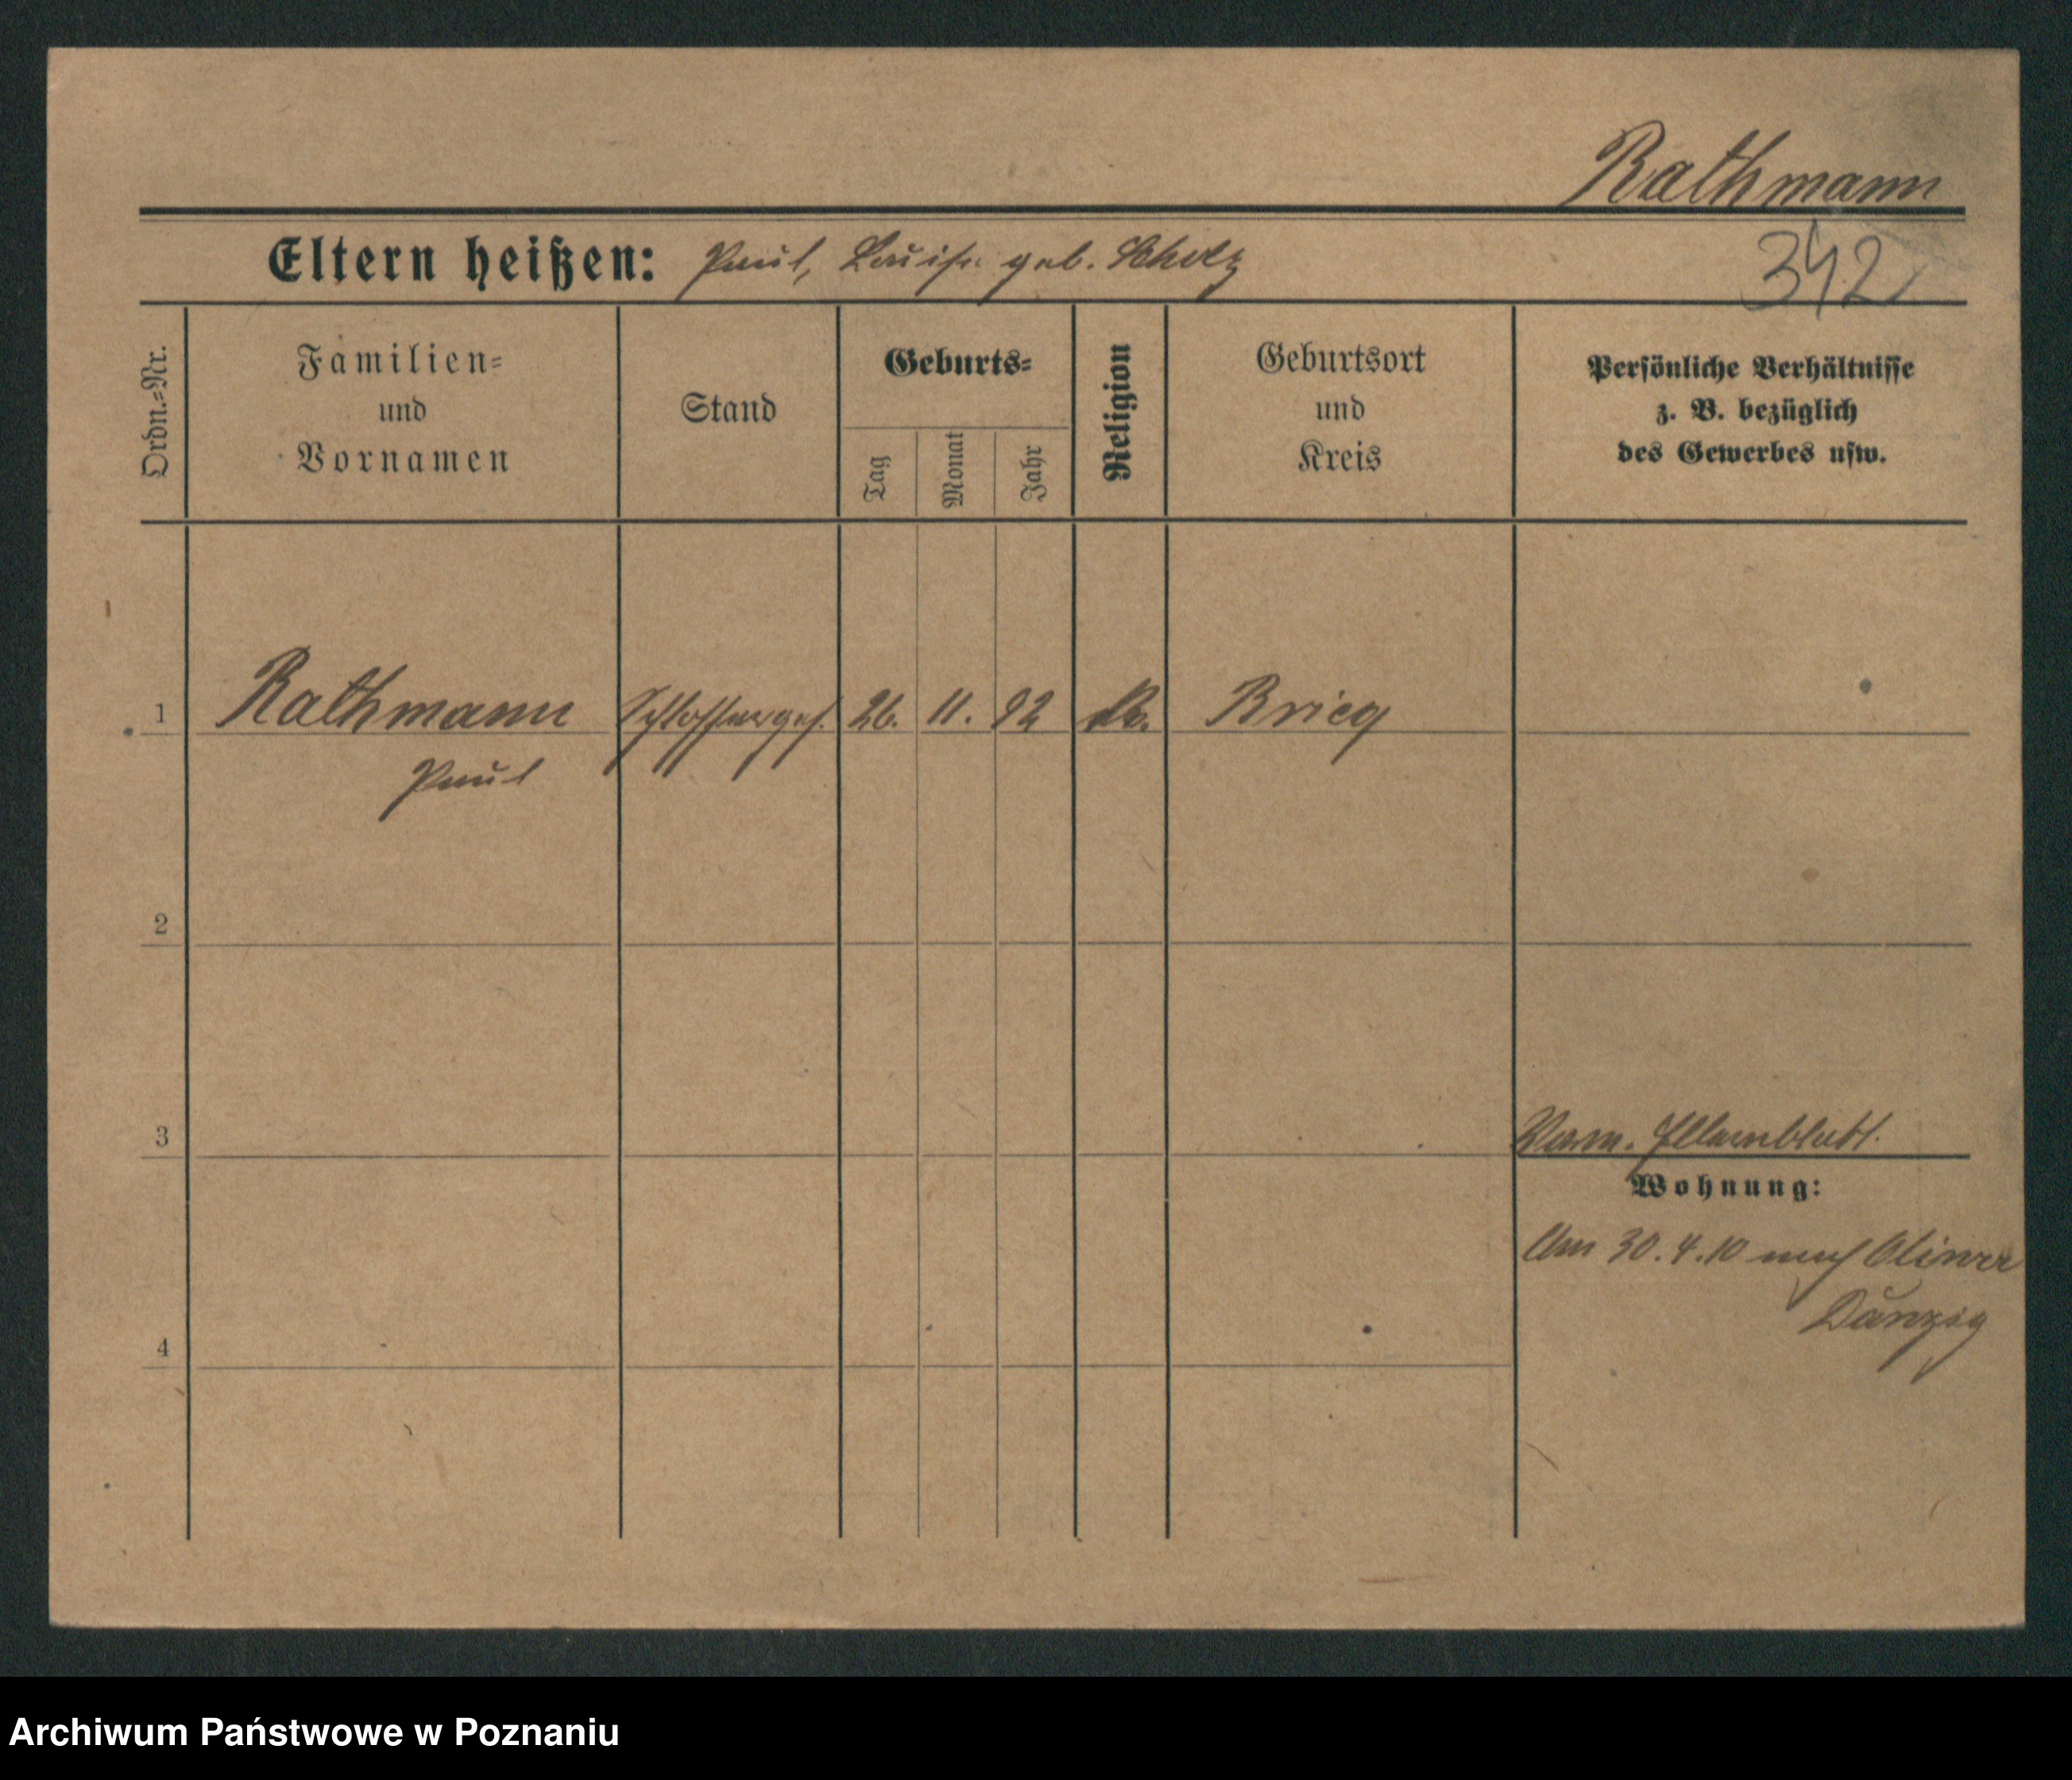 Rathmann
Eltern heißen: Paul, Louise geb. Scholz
342
Ordn.=Nr.
Familien=
und
Vornamen
Stand
Geburts=
Tag
Monat
Jahr
Religion
Geburtsort
und
Kreis
Persönliche Verhältnisse
z. B. bezüglich
des Gewerbes usw.
1 Rathmann Schlosserges. 26. 11. 92 Brieg
Paul
2
3
Wohnung:
Am 30.4.10 nach Oliwa
Danzig
4
Archiwum Państwowe w Poznaniu